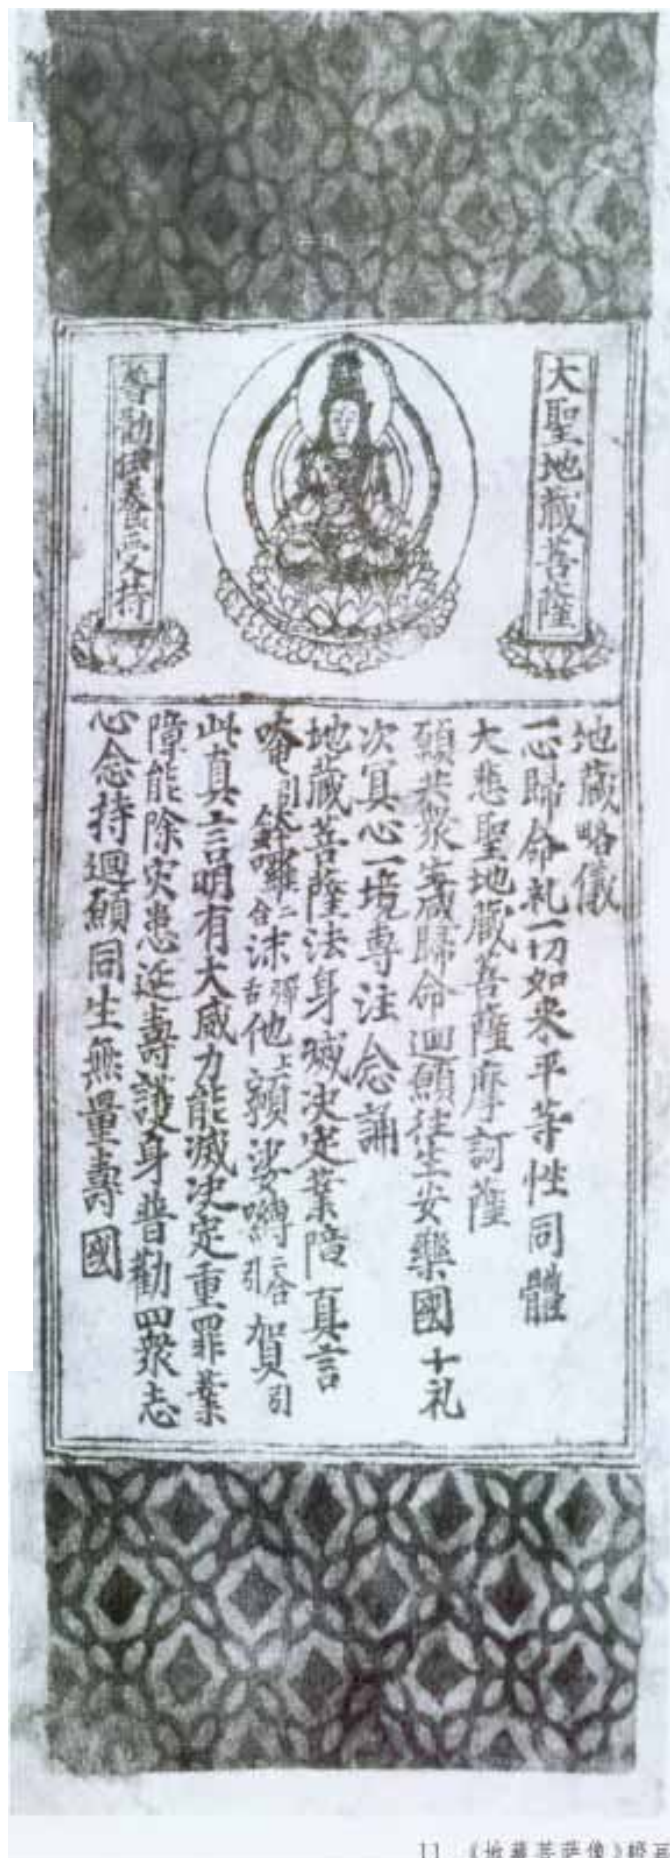 大聖地藏菩薩
普勸供養受持
地藏略儀
一心歸命礼一切如来平等性同體
大悲聖地藏菩薩摩訶薩
願共衆生咸歸命迴願往生安樂國十礼
次冥心一境專注念誦
地藏菩薩法身滅决定業障真言
唵引鉢囉二合沫舌彈他上領娑嚩二合引賀引
此真言明有大威力能滅决定重罪業
障能除灾患延壽護身普勸四衆志
心念持迴願同生無量壽國
11 《地藏菩萨像》